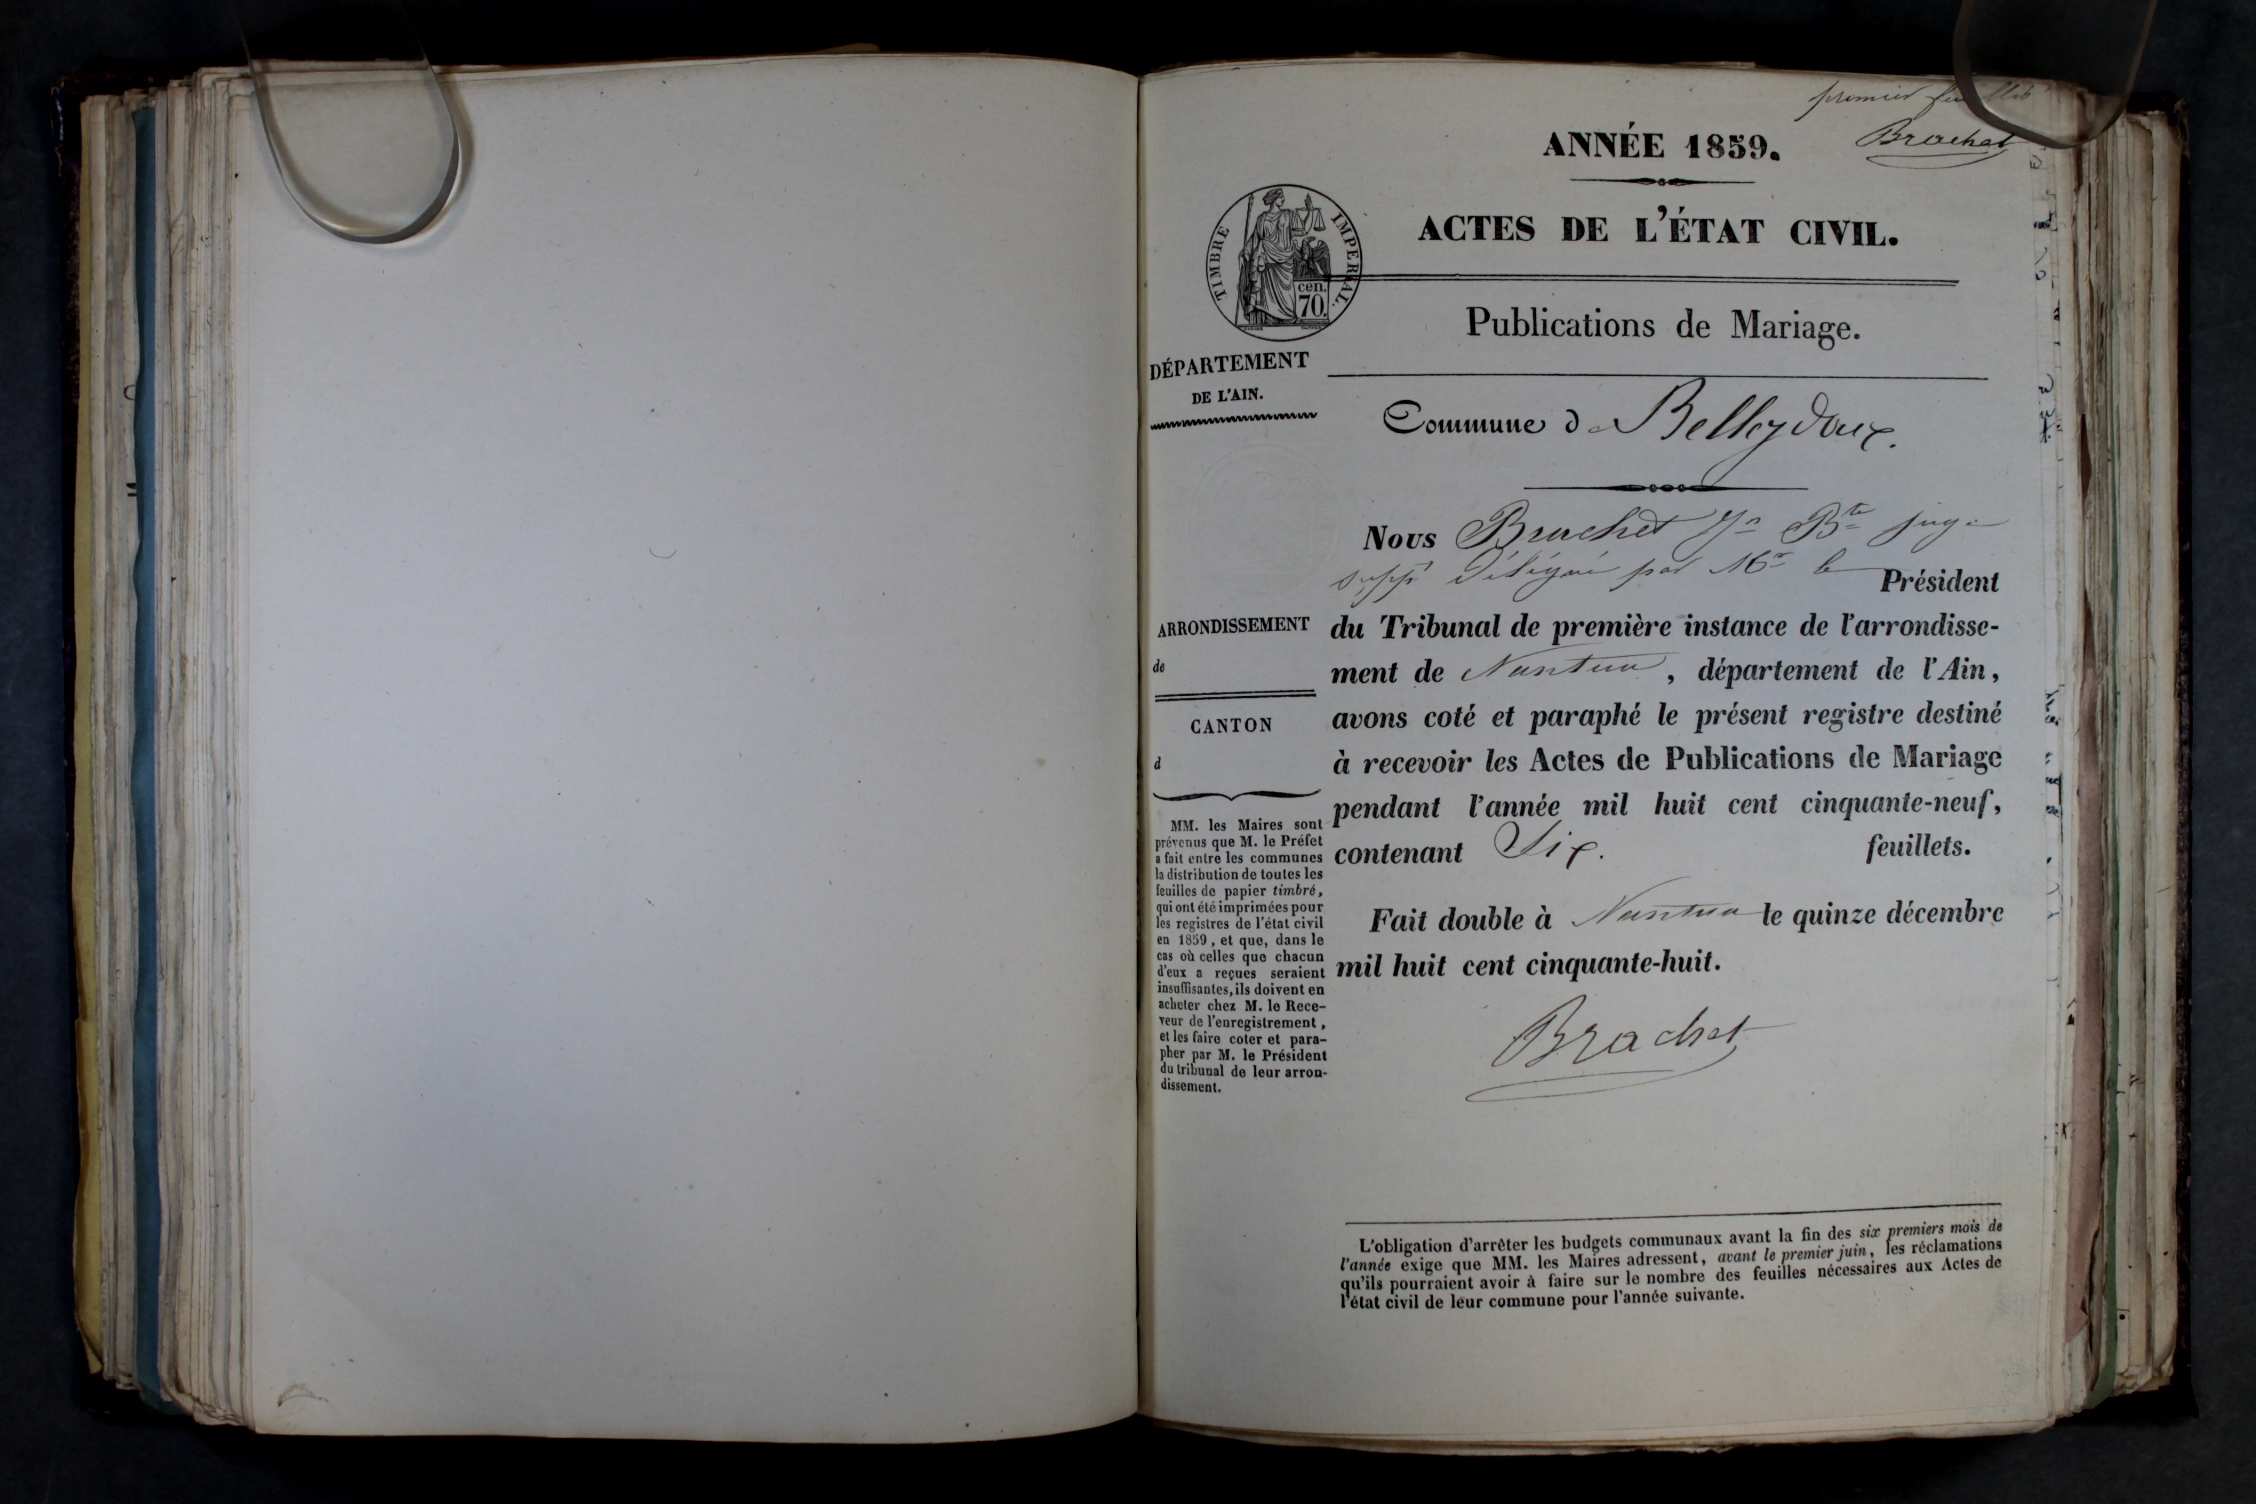 premier feuillet
Brachet
ANNÉE 1859.
ACTES DE L'ÉTAT CIVIL.
TIMBRE IMPERIAL.
cen.
70.
Publications de Mariage.
DÉPARTEMENT
DE L'AIN.
Commune de Belleydoux.
ARRONDISSEMENT
de
CANTON
d
MM. les Maires sont
prévenus que M. le Préfet
a fait entre les communes
la distribution de toutes les
feuilles de papier timbré,
qui ont été imprimées pour
les registres de l'état civil
en 1859, et que, dans le
cas où celles que chacun
d'eux a reçues seraient
insuffisantes, ils doivent en
acheter chez M. le Rece-
veur de l'enregistrement,
et les faire coter et para-
pher par M. le Président
du tribunal de leur arron-
dissement.
Nous Brachet Jn Bte juge
suppt délégué par Mr le Président
du Tribunal de première instance de l'arrondisse-
ment de Nantua, département de l'Ain,
avons coté et paraphé le présent registre destiné
à recevoir les Actes de Publications de Mariage
pendant l'année mil huit cent cinquante-neuf,
contenant Six. feuillets.
Fait double à Nantua le quinze décembre
mil huit cent cinquante-huit.
Brachet
L'obligation d'arrêter les budgets communaux avant la fin des six premiers mois de
l'année exige que MM. les Maires adressent, avant le premier juin, les réclamations
qu'ils pourraient avoir à faire sur le nombre des feuilles nécessaires aux Actes de
l'état civil de leur commune pour l'année suivante.